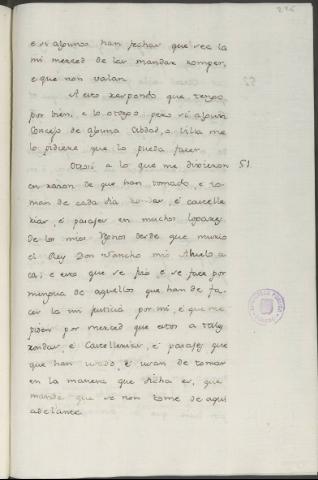 226
e si algunas han fechas que sea la
mi merced de las mandar romper,
e que non valan.
A esto respondo que tengo
por bien, e lo otorgo pero si algun
Concejo de alguna Cibdad, o Villa me
lo pidiere que lo pueda facer.
Otrosi a lo que me dixeron 51.
en razon de que han tomado, e to-
man de cada dia é castille-
rias, é pasajes en muchos logares
de los mios Regnos desde que murio
el Rey Don Sancho mio Abuelo a
ca; e esto que se fizo, e se face por
mengua de aquellos que han de fa-
cer la mi justicia por mi, é que me
piden por merced que estos a tales
rondas, é Castellerias, é pasajes que
que han usado, é usan de tomar
en la manera que dicha es, que
mande que se non tome de aqui
adelante.